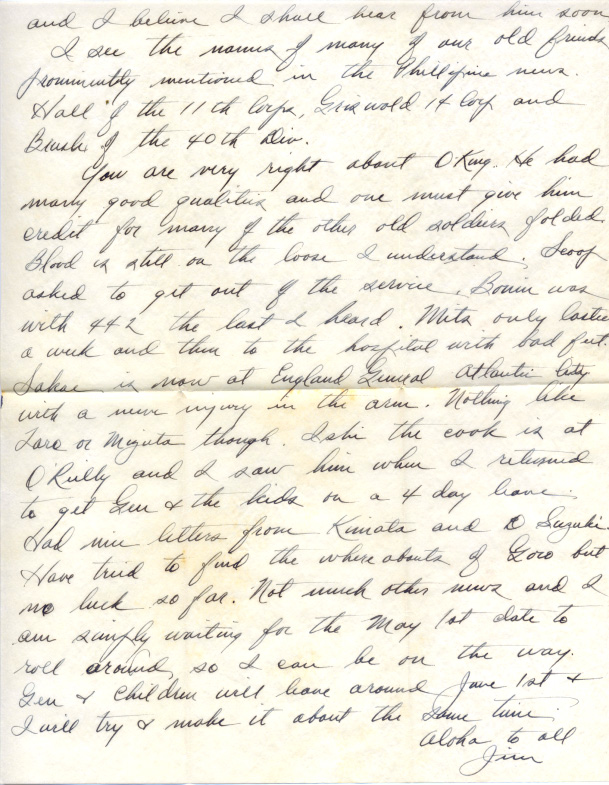 and I believe I shall hear from him soon
I see the names of many of our old friends
prominently mentioned in the Phillipine news.
Hall of the 11th Corps, Griswold 14 Corp and
Brush of the 40th Div.
You are very right about OKing. He had
many good qualities and one must give him
credit for many of the other old soldiers folded.
Blood is still on the loose I understand. Scoop
asked to get out of the service. Bonin was
with 442 the last I heard. Mits only lasted
a week and then to the hospital with bad feet.
Sakae is now at England General Atlantic City
with a nerve injury in the arm. Nothing like
Taro or Mizuta though. Ishi the cook is at
O'Reilly and I saw him when I returned
to get Gen & the kids on a 4 day leave.
Had nice letters from Kimata and D Suzuki.
Have tried to find the whereabouts of Goro but
no luck so far. Not much other news and I
am simply waiting for the May 1st date to
roll around, so I can be on the way.
Gen & Children will leave around June 1st &
I will try & make it about the same time.
Aloha to all
Jim